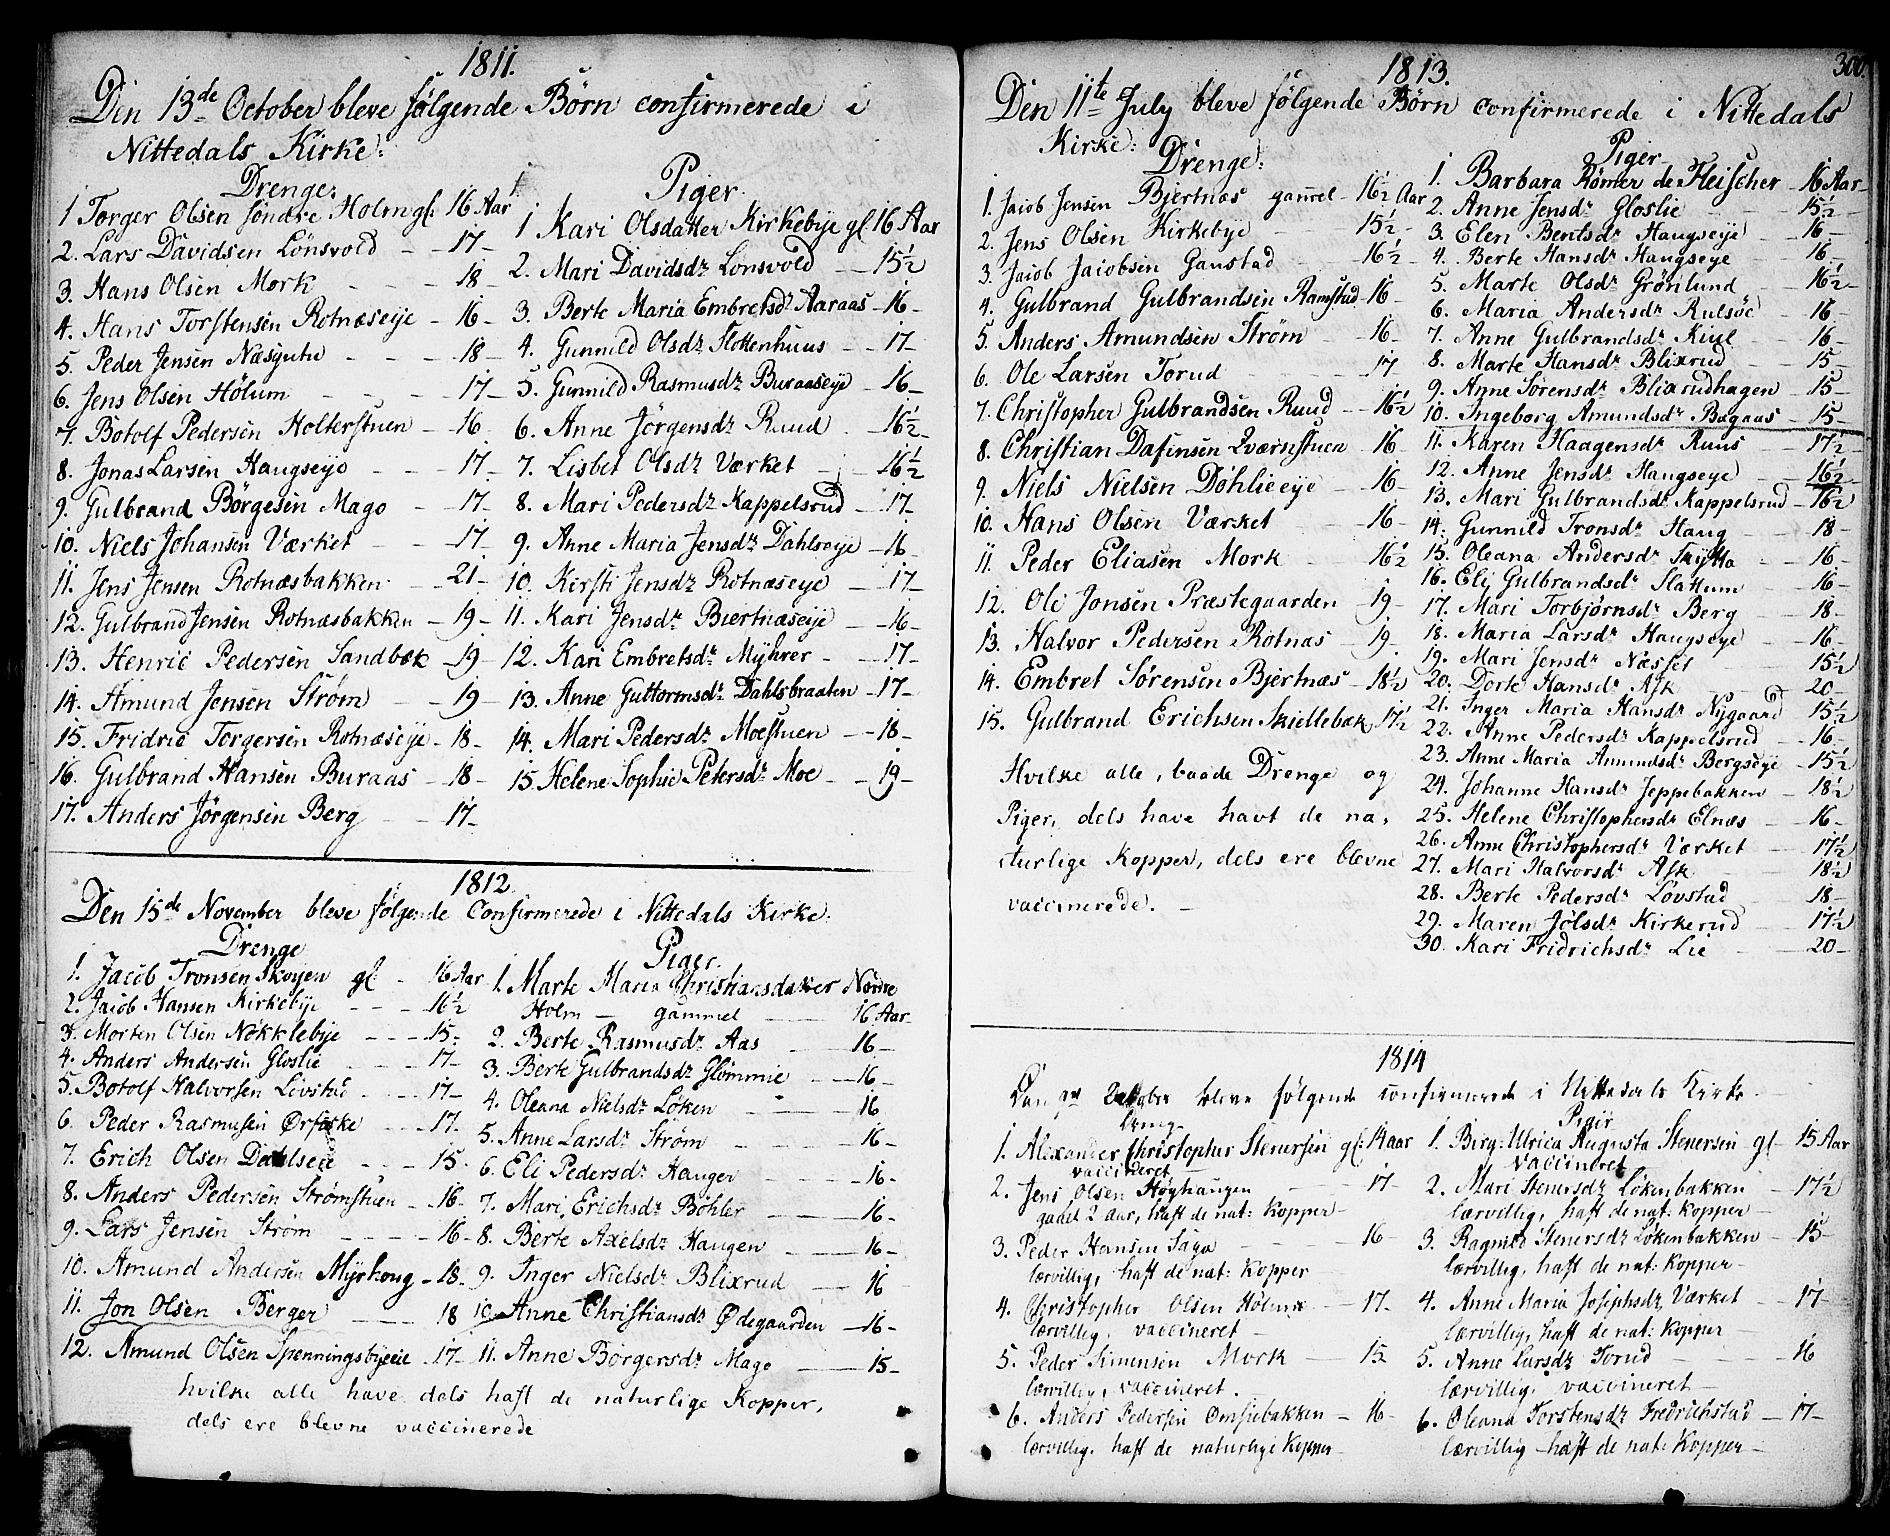 1811.
Den 13de October bleve følgende Børn confirmerede i
Nittedals Kirke:
Drenge
1 Torger Olsen søndre Holm gl. 16 Aar
2. Lars Davidsen Lönsvold - 17 -
3. Hans Olsen Mork - - - 18 -
4. Hans Torstensen Rotnæseije - 16 -
5. Peder Jensen Næsgutu - - - 18 -
6. Jens Olsen Hölum - - - 17 -
7. Botolf Pedersen Holterstuen - 16
8. Jonas Larsen Haugseye - - - 17 -
9. Gulbrand Börgesen Mago - 17 -
10. Niels Johansen Værket - - 17 -
11. Jens Jensen Rotnæsbakken - 21 -
12. Gulbrand Jensen Rotnæsbakken - 19 -
13. Henric Pedersen Sandbæk - 19 -
14. Amund Jensen Strøm - - 19 -
15. Fridric Torgersen Rotnæseije - 18 -
16. Gulbrand Hansen Buraas - 18 -
17. Anders Jörgensen Berg - - 17 -
Piger
1 Kari Olsdatter Kirkebye gl. 16 Aar
2. Mari Davidsdr Lonsvold - 15½
3. Berte Maria Embretsdr Aaraas - 16 -
4. Gunnild Olsdr Slottenhuus - 17 -
5. Gunnild Rasmusdr Buraaseye - 16 -
6. Anne Jörgensdr Ruud - 16½ -
7. Lisbet Olsdr Værket - 16½
8. Mari Pedersdr Kappelsrud - 17 -
9. Anne Maria Jensdr Dahlseye - 16 -
10. Kirsti Jensdr Rotnæseye - 17 -
11. Kari Jensdr Biertnæseye - 16 -
12. Kari Embretsdr Myhrer - 17 -
13. Anne Guttormsdr Dahlsbraaten - 17 -
14. Mari Pedersdr Moestuen - 18 -
15. Helene Sophie Petersdr Moe - 19 -
1812.
Den 15de November bleve følgende Confirmerede i Nittedals Kirke.
Drenge
1. Jacob Tronsen Skøyen gl - 16 Aar
2. Jacob Hansen Kirkebye - - - 16½
3. Morten Olsen Nökklebye - - - 15 -
4. Anders Andersen Gloslie - - - 17 -
5. Botolf Halvorsen Lövstad - - - 17 -
6. Peder Rasmusen Ørfiske - - - 17 -
7. Erich Olsen - - - 15 -
8. Anders Pedersen Strømstuen - 16 -
9. Lars Jensen Strøm - - - 16 -
10. Amund Andersen Myrhoug - 18 -
11. Jon Olsen Berger - - - 18
12. Amund Olsen Spenningsbyeeie - 17 -
Piger
1. Marte Maria Christiansdatter Nordre
Holm - gammel - 16 Aar
2. Berte Rasmusdr Aas - 16 -
3. Berte Gulbrandsdr Glömmie - 16 -
4. Oleana Nielsdr Löken - 16
5. Anne Larsdr Strøm - 16 -
6. Eli Pedersdr Haugen - 16 -
7. Mari Erichsdr Böhler - 16 -
8. Berte Axelsdr Haugen - 16 -
9. Inger Nielsdr Blixrud - 16
10. Anne Christiansdr Ødegaarden - 16 -
11. Anne Börgersdr Mago - 15 -
hvilke alle have dels haft de naturlige Kopper,
dels ere blevne vaccinerede
300.
1813.
Den 11te July bleve følgende Børn confirmerede i Nittedals
Kirke:
Drenge:
1. Jacob Jensen Bjertnæs gammel - 16½ Aar
2. Jens Olsen Kirkebye - 15½ -
3. Jacob Jacobsen Gaustad - 16½ -
4. Gulbrand Gulbrandsen Ramstad 16 -
5. Anders Amundsen Strøm - 16 -
6. Ole Larsen Torud - 17
7. Christopher Gulbrandsen Ruud - 16½
8. Christian Dafinsen Qværnstuen 16 -
9. Niels Nielsen Döhlieeye - 16 -
10. Hans Olsen Værket - 16 -
11. Peder Eliasen Mork - 16½
12. Ole Jonsen Præstegaarden - 19 -
13. Halvor Pedersen Rotnæs - 19.
14. Embret Sørensen Bjertnæs - 18½
15. Gulbrand Erichsen Skillebæk 17½
Hvilke alle, baade Drenge og
Piger, dels have havt de na-
turlige Kopper, dels ere blevne
vaccinerede. -
Piger
1. Barbara Römer de Fleischer - 16 Aar -
2. Anne Jensdr Gloslie - 15½ -
3. Elen Bentsdr Haugseye - 16 -
4. Berte Hansdr Haugseye - 16 -
5. Marte Olsdr Grönlund - 16½ -
6. Maria Andersdr Rulsöe - 16 -
7. Anne Gulbrandsdr Kiul - 16 -
8. Marte Hansdr Blixrud - 15 -
9. Anne Sörensdr Blixrudhagen - 15 -
10. Ingeborg Amundsdr Bagaas - 15 -
11. Karen Haagensdr Ruus - 17½
12. Anne Jensdr Haugseye - 16½ -
13. Mari Gulbrandsdr Kappelsrud - 16½
14. Gunnild Tronsdr Haug - 18 -
15. Oleana Andersdr Skytta - 16 -
16. Eli Gulbrandsdr Slattum - 16 -
17. Mari Torbjørnsdr Berg - 18 -
18. Maria Larsdr Haugseye - 16 -
19. Mari Jensdr Næsset 15½
20. Dorte Hansdr Ask - 20 -
21. Inger Maria Hansdr Nygaard 15½
22. Anne Pedersdr Kappelsrud - 16 -
23. Anne Maria Amundsdr Bergseye - 15½
24. Johanne Hansdr Jeppebakken - 18½
25. Helene Christophersdr Elnæs - 16 -
26. Anne Christophersdr Værket - 17½
27. Mari Halvorsdr Ask - 18½
28. Berte Pedersdr Lövstad - 18 -
29. Maren Jølsdr Kirkerud - 17½
30. Kari Fridrichsdr Lie - 20 -
1814
Den October bleve følgende confirmerede i Nittedals Kirke.
Dreng
1. Alexander Christopher Stenersen gl: 14 aar
vaccineret -
2. Jens Olsen Høyhaugen - 17
gaael 2 aar, haft de nat: Kopper -
3. Peder Hansen Saga - 16 -
lærvillig, haft de nat: Kopper
4. Christopher Olsen Hölum - 17 -
lærvillig, vaccineret -
5. Peder Simensen Mork - 15
lærvillig, vaccineret.
6. Anders Pedersen Omsiebakken - 16 -
lærvillig. haft de naturlige Kopper -
Piger
1. Birg: Ulrica Augusta Stenersen gl - 15 Aar
vaccineret -
2. Mari Stenersdr Lökenbakken - 17½
lærvillig, haft de nat: Kopper -
3. Ragnild Stenersdr Lökenbakken - 15 -
lærvillig, haft de nat: Kopper -
4. Anne Maria Josephsdr Værket - 17 -
lærvillig, haft de nat: Kopper
5. Anne Larsdr Torud - 16
lærvillig, vaccineret -
6. Oleana Torstensdr Fredrichstad - 17 -
lærvillig haft de nat: Kopper -